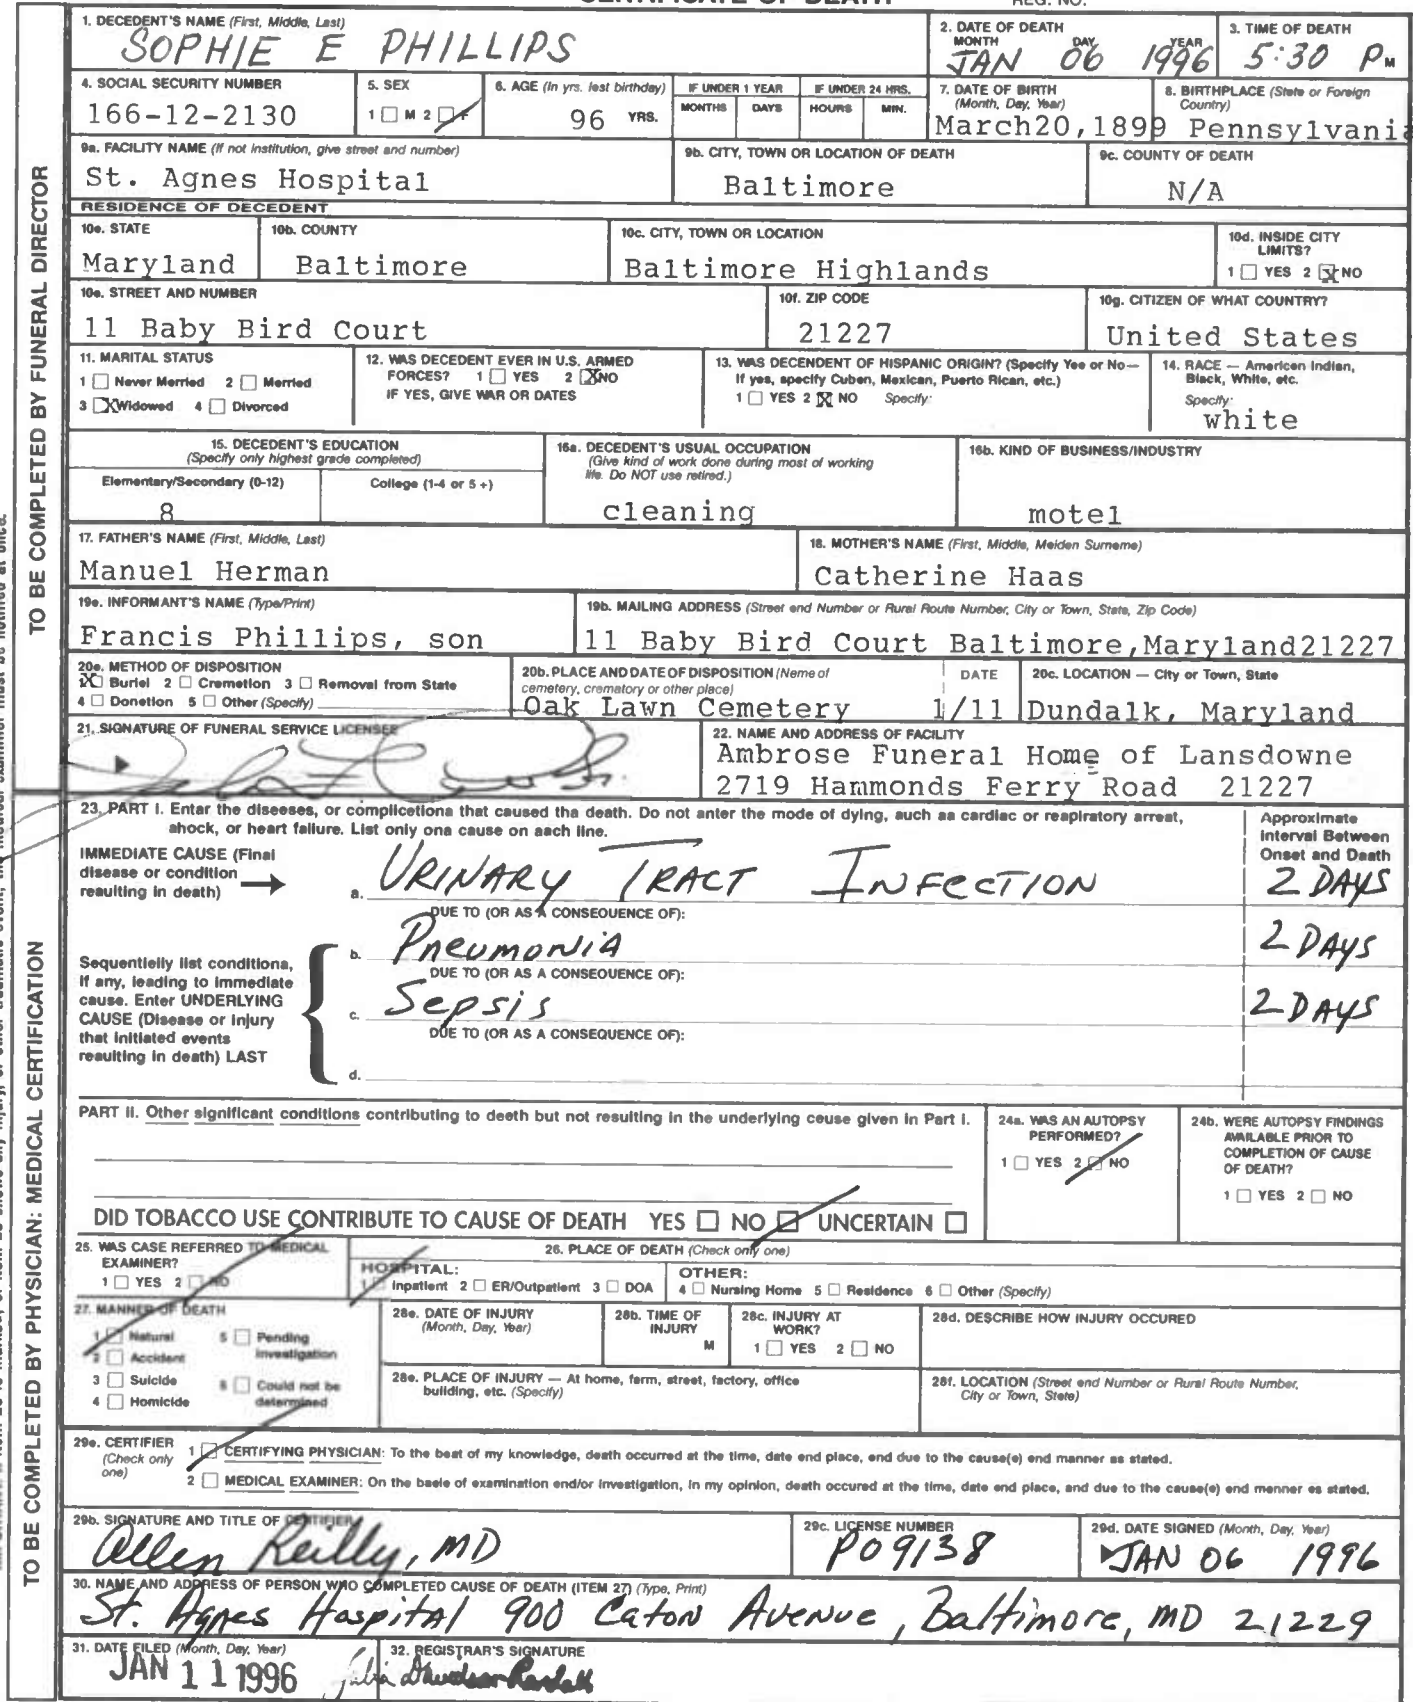 CERTIFICATE OF DEATH REG. NO.
1. DECEDENT'S NAME (First, Middle, Last)
SOPHIE E PHILLIPS
2. DATE OF DEATH
MONTH DAY YEAR
JAN 06 1996
3. TIME OF DEATH
5:30 P M
4. SOCIAL SECURITY NUMBER
166-12-2130
5. SEX
1 M 2 F
6. AGE (In yrs. last birthday)
96 YRS.
IF UNDER 1 YEAR
MONTHS DAYS
IF UNDER 24 HRS.
HOURS MIN.
7. DATE OF BIRTH
(Month, Day, Year)
March20,1899
8. BIRTHPLACE (State or Foreign
Country)
Pennsylvania
9a. FACILITY NAME (If not institution, give street and number)
St. Agnes Hospital
9b. CITY, TOWN OR LOCATION OF DEATH
Baltimore
9c. COUNTY OF DEATH
N/A
RESIDENCE OF DECEDENT
10a. STATE
Maryland
10b. COUNTY
Baltimore
10c. CITY, TOWN OR LOCATION
Baltimore Highlands
10d. INSIDE CITY
LIMITS?
1 YES 2 X NO
10e. STREET AND NUMBER
11 Baby Bird Court
10f. ZIP CODE
21227
10g. CITIZEN OF WHAT COUNTRY?
United States
11. MARITAL STATUS
1 Never Married 2 Married
3 X Widowed 4 Divorced
12. WAS DECEDENT EVER IN U.S. ARMED
FORCES? 1 YES 2 X NO
IF YES, GIVE WAR OR DATES
13. WAS DECENDENT OF HISPANIC ORIGIN? (Specify Yes or No—
If yes, specify Cuban, Mexican, Puerto Rican, etc.)
1 YES 2 X NO Specify:
14. RACE — American Indian,
Black, White, etc.
Specify:
white
15. DECEDENT'S EDUCATION
(Specify only highest grade completed)
Elementary/Secondary (0-12) College (1-4 or 5 +)
8
16a. DECEDENT'S USUAL OCCUPATION
(Give kind of work done during most of working
life. Do NOT use retired.)
cleaning
16b. KIND OF BUSINESS/INDUSTRY
motel
17. FATHER'S NAME (First, Middle, Last)
Manuel Herman
18. MOTHER'S NAME (First, Middle, Maiden Surname)
Catherine Haas
19a. INFORMANT'S NAME (Type/Print)
Francis Phillips, son
19b. MAILING ADDRESS (Street and Number or Rural Route Number, City or Town, State, Zip Code)
11 Baby Bird Court Baltimore,Maryland21227
20a. METHOD OF DISPOSITION
1 X Burial 2 Cremation 3 Removal from State
4 Donation 5 Other (Specify)
20b. PLACE AND DATE OF DISPOSITION (Name of
cemetery, crematory or other place) DATE
Oak Lawn Cemetery 1/11
20c. LOCATION — City or Town, State
Dundalk, Maryland
21. SIGNATURE OF FUNERAL SERVICE LICENSEE
22. NAME AND ADDRESS OF FACILITY
Ambrose Funeral Home of Lansdowne
2719 Hammonds Ferry Road 21227
TO BE COMPLETED BY FUNERAL DIRECTOR
23. PART I. Enter the diseases, or complications that caused the death. Do not enter the mode of dying, such as cardiac or respiratory arrest,
shock, or heart failure. List only one cause on each line.
Approximate
Interval Between
Onset and Death
IMMEDIATE CAUSE (Final
disease or condition
resulting in death)
a. URINARY TRACT INFECTION 2 DAYS
DUE TO (OR AS A CONSEQUENCE OF):
b. Pneumonia 2 DAYS
DUE TO (OR AS A CONSEQUENCE OF):
Sequentially list conditions,
if any, leading to immediate
cause. Enter UNDERLYING
CAUSE (Disease or injury
that initiated events
resulting in death) LAST
c. Sepsis 2 DAYS
DUE TO (OR AS A CONSEQUENCE OF):
d.
PART II. Other significant conditions contributing to death but not resulting in the underlying cause given in Part I.
24a. WAS AN AUTOPSY
PERFORMED?
1 YES 2 NO
24b. WERE AUTOPSY FINDINGS
AVAILABLE PRIOR TO
COMPLETION OF CAUSE
OF DEATH?
1 YES 2 NO
DID TOBACCO USE CONTRIBUTE TO CAUSE OF DEATH YES NO UNCERTAIN
25. WAS CASE REFERRED TO MEDICAL
EXAMINER?
1 YES 2 NO
26. PLACE OF DEATH (Check only one)
HOSPITAL:
1 Inpatient 2 ER/Outpatient 3 DOA
OTHER:
4 Nursing Home 5 Residence 6 Other (Specify)
27. MANNER OF DEATH
1 Natural 5 Pending
2 Accident Investigation
3 Suicide 6 Could not be
4 Homicide determined
28a. DATE OF INJURY
(Month, Day, Year)
28b. TIME OF
INJURY
M
28c. INJURY AT
WORK?
1 YES 2 NO
28d. DESCRIBE HOW INJURY OCCURED
28e. PLACE OF INJURY — At home, farm, street, factory, office
building, etc. (Specify)
28f. LOCATION (Street and Number or Rural Route Number,
City or Town, State)
29a. CERTIFIER
(Check only
one)
1 CERTIFYING PHYSICIAN: To the best of my knowledge, death occurred at the time, date and place, and due to the cause(s) and manner as stated.
2 MEDICAL EXAMINER: On the basis of examination and/or investigation, in my opinion, death occured at the time, date and place, and due to the cause(s) and manner as stated.
29b. SIGNATURE AND TITLE OF CERTIFIER
Allen Reilly, MD
29c. LICENSE NUMBER
P09138
29d. DATE SIGNED (Month, Day, Year)
JAN 06 1996
30. NAME AND ADDRESS OF PERSON WHO COMPLETED CAUSE OF DEATH (ITEM 27) (Type, Print)
St. Agnes Hospital 900 Caton Avenue, Baltimore, MD 21229
31. DATE FILED (Month, Day, Year)
JAN 11 1996
32. REGISTRAR'S SIGNATURE
TO BE COMPLETED BY PHYSICIAN: MEDICAL CERTIFICATION